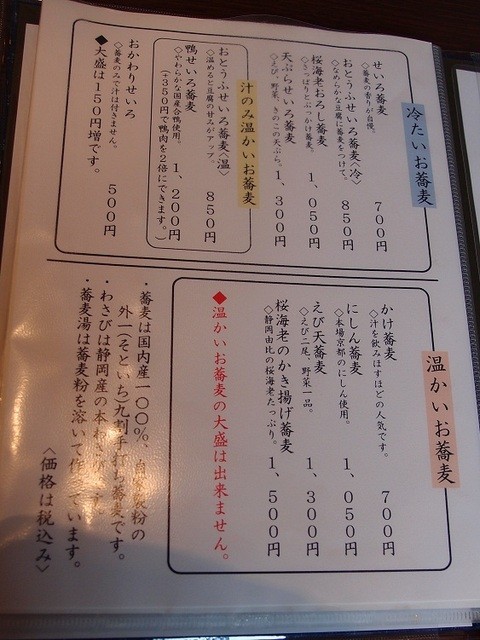 冷たいお蕎麦
せいろ蕎麦 700円
◇蕎麦の香りが自慢。
おとうふせいろ蕎麦〈冷〉 850円
◇なめらかな豆腐に蕎麦をつけて。
桜海老おろし蕎麦 1,050円
◇さっぱりとぶっかけ蕎麦。
天ぷらせいろ蕎麦 1,300円
◇えび、野菜、きのこの天ぷら。
汁のみ温かいお蕎麦
おとうふせいろ蕎麦〈温〉 850円
◇温めると豆腐の甘みがアップ。
鴨せいろ蕎麦 1,200円
◇やわらかな国産合鴨使用。
(+350円で鴨肉を2倍にできます。)
おかわりせいろ 500円
◇蕎麦のみで汁は付きません。
◆大盛は150円増です。
温かいお蕎麦
かけ蕎麦 700円
◇汁を飲みほすほどの人気です。
にしん蕎麦 1,050円
◇本場京都のにしん使用。
えび天蕎麦 1,300円
◇えび二尾、野菜一品。
桜海老のかき揚げ蕎麦 1,500円
◇静岡由比の桜海老たっぷり。
◆温かいお蕎麦の大盛は出来ません。
・蕎麦は国内産一〇〇%、自家製粉の
外一(そといち)九割手打ち蕎麦です。
・わさびは静岡産の本わさびです。
・蕎麦湯は蕎麦粉を溶いて作っています。
〈価格は税込み〉